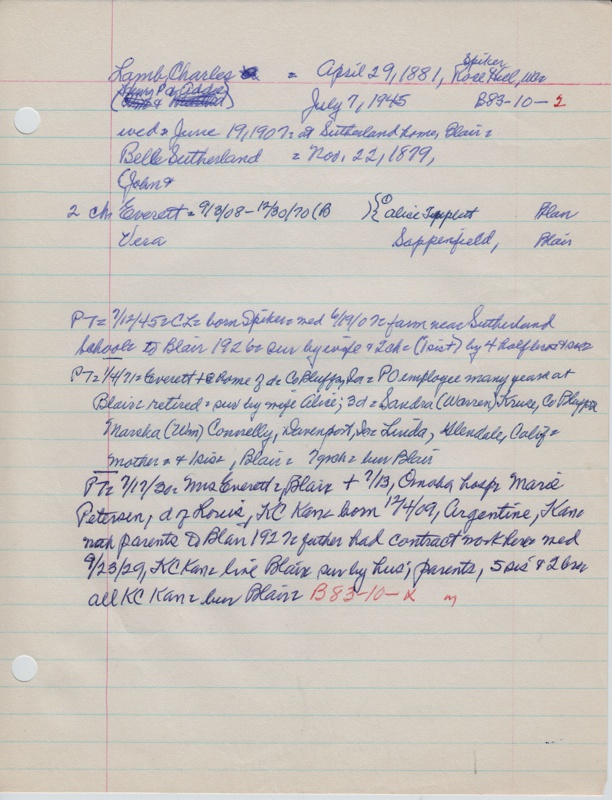 Lamb, Charles = April 29, 1881, Spiker, Rose Hill,
(Henry P &) July 7, 1945 B83-10-2
wed = June 19, 1907 = at Sutherland home, Blair =
Belle Sutherland = Nov. 22, 1879,
(John +
2 ch Everett = 9/3/08 - 12/30/70 (B ) { ① Alice Tippett Blair
Vera Sappenfield, Blair
PT = 7/12/45 = CL = born Spiker = wed 6/19/07 = farm near Sutherland
School = to Blair 1926 = sur by wife + 2 ch = (1 sist) by 4 half bros + sis
PT = 1/4/71 = Everett + @ home of da Co Bluffs, Ia = PO employee many years at
Blair = retired = sur by wife Alice; 3 d = Sandra (Warren) Kruse, Co Bluffs
Marsha (Wm) Connelly, Davenport, Ia = Linda, Glendale, Calif =
mother = + 1 sist, Blair = 7 grch = bur Blair
PT = 7/17/30 = Mrs Everett = Blair + 7/13, Omaha hosp = Marie
Petersen, d of Louis, KC Kan = born 12/4/09, Argentine, Kan =
with parents to Blair 1927 = father had contract work here = wed
9/23/29, KC Kan = live Blair = sur by hus; parents, 5 sis + 2 bro
all KC Kan = bur Blair = B83-10-